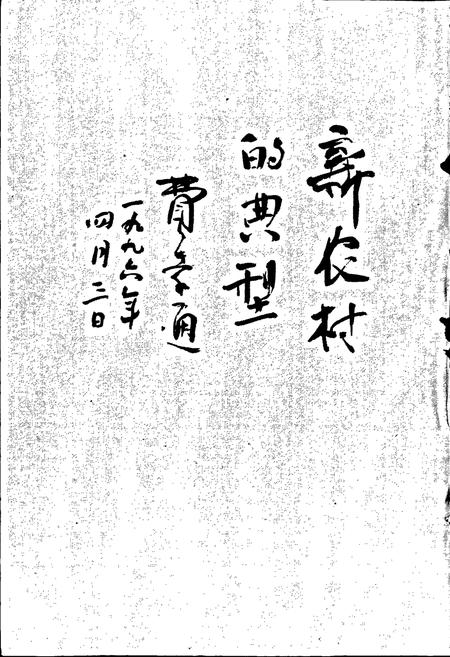 新农村
的典型
费孝通
一九九六年
四月三日